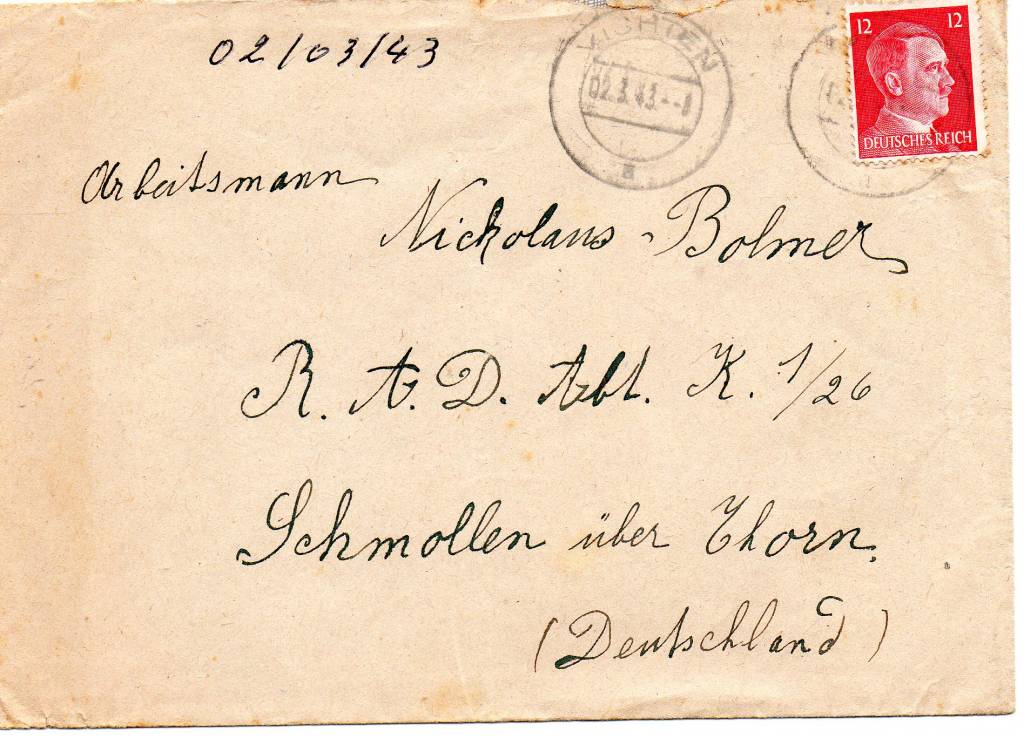 02/03/43
VICHTEN
02.3.43.--8
a
12 12
DEUTSCHES REICH
Arbeitsmann
Nickolaus Bolmer
R. A. D. Abt. K. 1/26
Schmollen über Thorn.
(Deutschland)